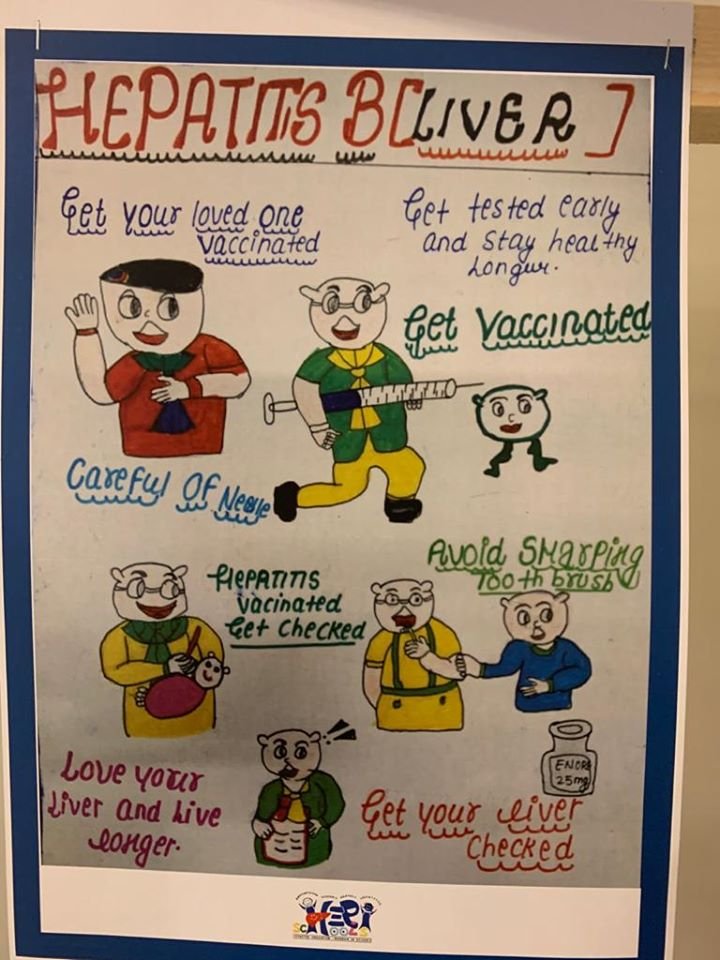 HEPATITIS B [LIVER]
Get your loved one
vaccinated
Get tested early
and stay healthy
Longur.
Get Vaccinated
Careful Of Neele
HEPATITIS
vacinated
Get checked
Avoid Sharping
Tooth brush
ENORE
25mg
Love your
Liver and Live
longer.
Get your liver
Checked